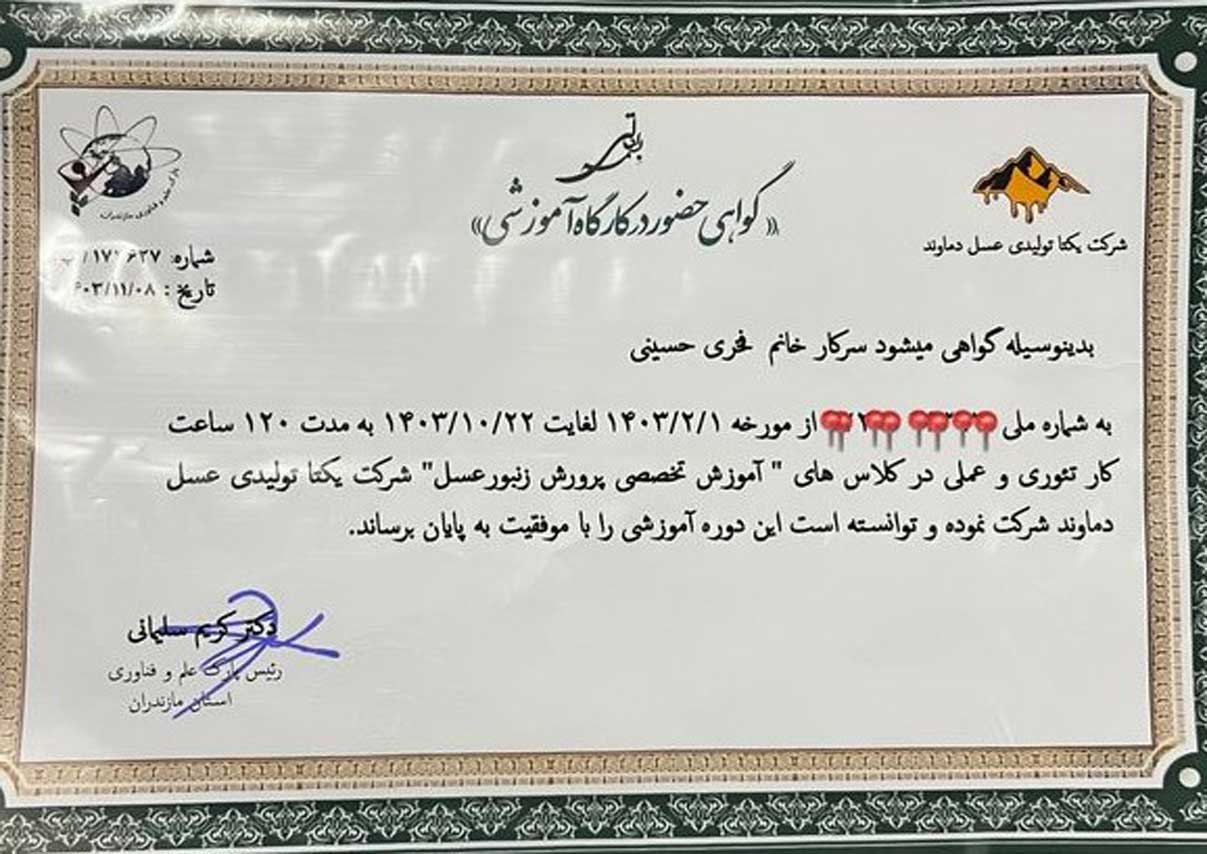 باسمه تعالی
«گواهی حضور در کارگاه آموزشی»
شرکت یکتا تولیدی عسل دماوند
پارک علم و فناوری مازندران
شماره:
تاریخ: ۴۰۳/۱۱/۰۸
بدینوسیله گواهی میشود سرکار خانم فخری حسینی
به شماره ملی از مورخه ۱۴۰۳/۲/۱ لغایت ۱۴۰۳/۱۰/۲۲ به مدت ۱۲۰ ساعت
کار تئوری و عملی در کلاس های " آموزش تخصصی پرورش زنبورعسل" شرکت یکتا تولیدی عسل
دماوند شرکت نموده و توانسته است این دوره آموزشی را با موفقیت به پایان برساند.
دکتر کریم سلیمانی
رئیس پارک علم و فناوری
استان مازندران